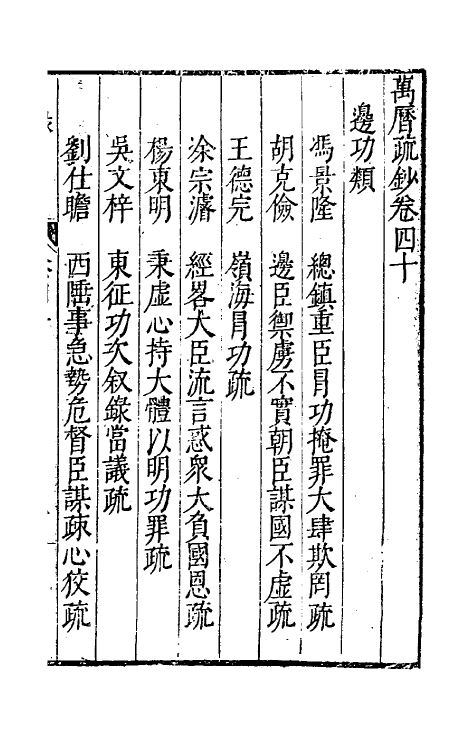 萬曆疏鈔卷四十
邊功類
馮景隆 總鎮重臣冐功掩罪大肆欺罔疏
胡克儉 邊臣禦虜不實朝臣謀國不虛疏
王德完 嶺海冐功疏
涂宗濬 經畧大臣流言惑衆大負國恩疏
楊東明 秉虛心持大體以明功罪疏
吳文梓 東征功次叙錄當議疏
劉仕瞻 西陲事急勢危督臣謀疎心狡疏